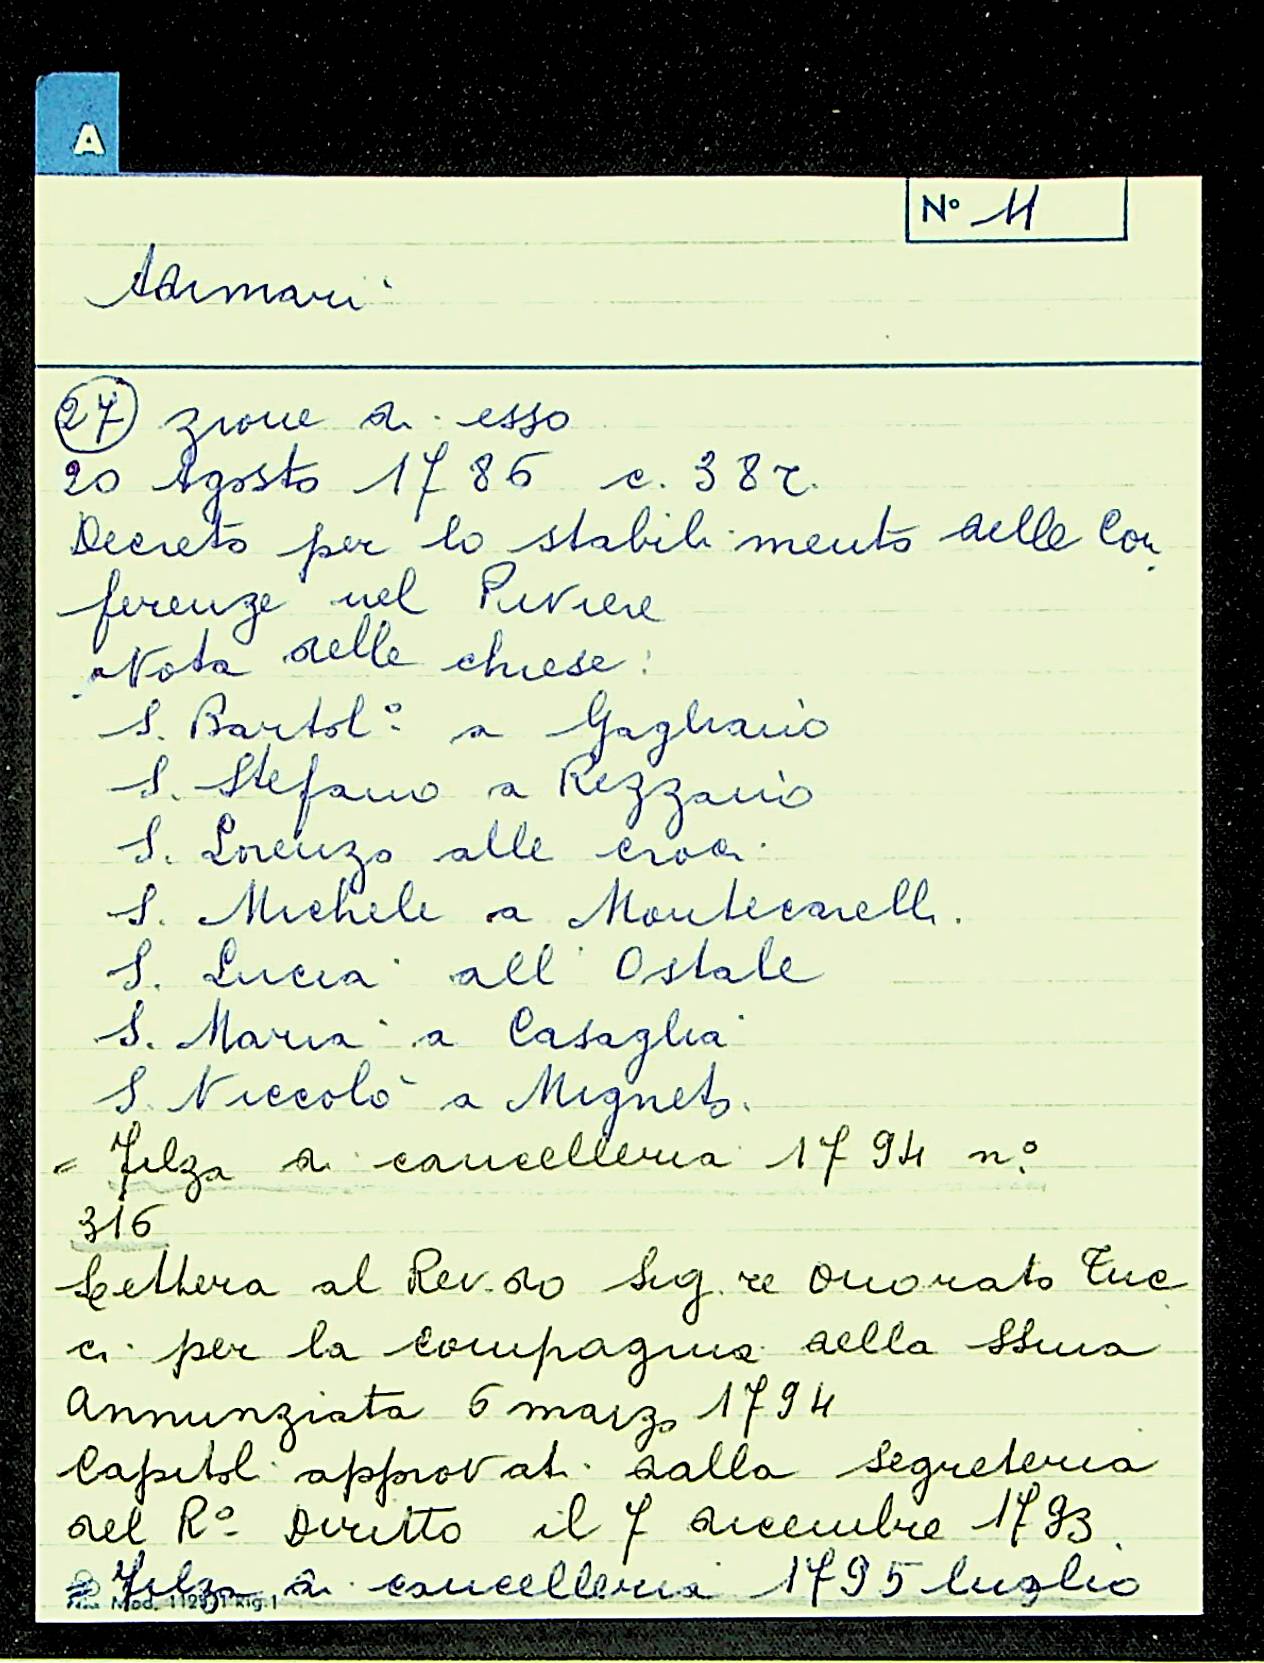 A
N° 11
Adimari
27 zione di esso
20 Agosto 1786 c. 38r.
Decreto per lo stabilimento delle Con
ferenze nel Piviere
Nota delle chiese:
S. Bartol° a Gagliano
S. Stefano a Rezzano
S. Lorenzo alle croci
S. Michele a Montecarelli.
S. Lucia all'Ostale
S. Maria a Casaglia
S. Niccolò a Migneto.
= Filza di cancelleria 1794 n°
316
Lettera al Rev.do Sig.re Onorato Tuc
ci per la Compagnia della SSma
Annunziata 6 marzo 1794
Capitoli approvati dalla Segreteria
del R° Diritto il 7 dicembre 1793.
= Filza di cancelleria 1795 luglio
Rig.1